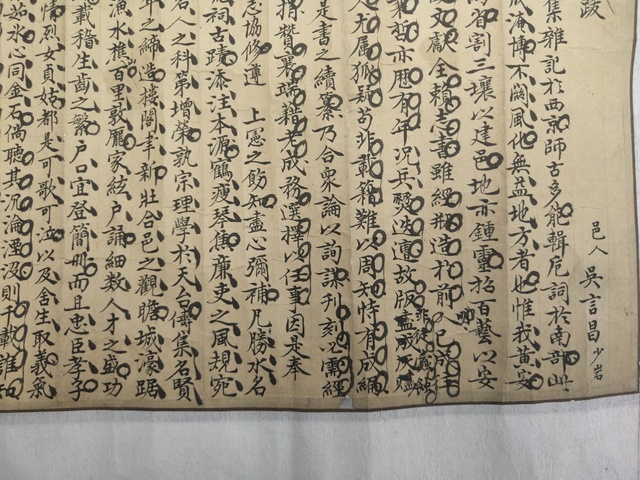 跋
邑人 吳言昌少岩
集雜記於西京師古多能輯卮詞於南部
浦博不關風化無益地方者也惟我黃安
割三壤以建邑地亦鍾靈招百藝以安
文獻全賴志書雖經刱造於前人已成
亦歷有年況兵燹迭遭故版盡成灰
尤屬狐疑苟非載籍難以周知恃有成編
是書之續纂乃合眾論以詢謀刊刻必需經
贊襄端藉老成務選擇以任事因是奉
志協修遵 上憲之飭知盡心彌補凡勝水名
祠古蹟添注本源鶴瘦琴焦廉吏之風規宛
名人之科第增榮孰宗理學於天台傳集名賢
年之締造樓閣聿新壯合邑之觀瞻城濠踞
漁水樵百里敦龐家絃戶誦細數人才之盛功
載稽生齒之繁戶口宜登簡冊而且忠臣孝子
情烈女貞姑都是可歌可泣以及舍生取義氣
如水心同金石倘聽其沉淪湮沒則千載誰知